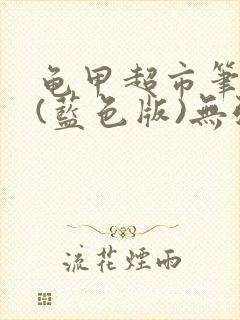 龟甲超市筆
(藍色版)無
流花煙雨